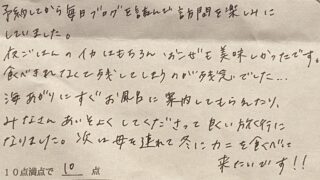 予約してから毎日ブログを読んで訪問を楽しみに
していました。
夜ごはんのイカはもちろん おこぜも美味しかったです。
食べきれなくて残してしまうのが残念でした…
海あがりにすぐお風呂に案内してもらえたり、
みなさんあいそよくしてくださって良い旅行に
なりました。次は母を連れて冬にカニを食べに
来たいです!!
10点満点で 10 点